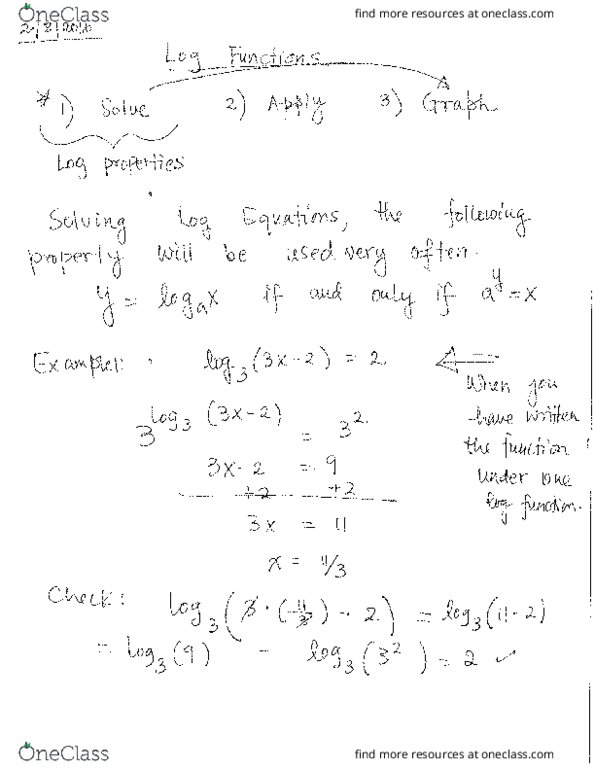 OneClass
find more resources at oneclass.com
Log Functions
* 1) Solve 2) Apply 3) Graph
Log properties
Solving Log Equations, the following
property will be used very often.
y = logₐx if and only if aʸ = x
Example1: log₃(3x-2) = 2
When you
have written
the function
under one
log function.
3^log₃(3x-2) = 3².
3x-2 = 9
+2 +2
3x = 11
x = 11/3
Check: log₃(3·(11/3) - 2) = log₃(11-2)
= log₃(9) = log₃(3²) = 2 ✓
OneClass
find more resources at oneclass.com